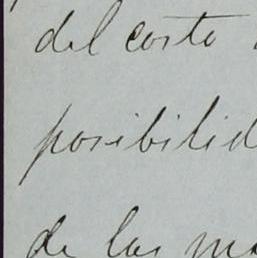 del costo
posibilid
de las